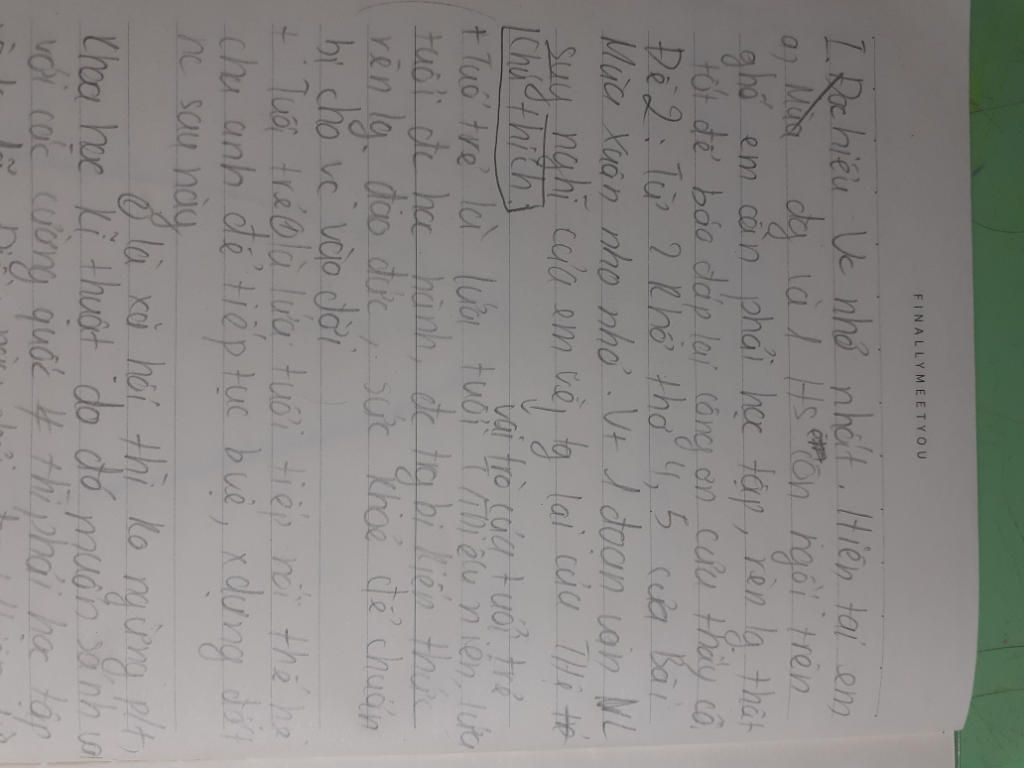 FINALLYMEETYOU
I. Dachiều - Vc nhỏ nhất. Hiện tại em
a, đg là 1 Hs còn ngồi trên
ghế em cần phải học tập, rèn lg thật
tốt để báo đáp lại công ơn cửu thầy cô
Đề 2: Từ 2 khổ thơ 4, 5 của Bài
Mùa xuân nho nhỏ. Vt 1 đoạn văn NL
suy nghĩ của em về tg lai của Thệ
Chú thích:
vai trò của tuổi trẻ
+ Tuổi trẻ là lứa tuổi (thiếu niên, lứa
tuổi đc học hành, đc trg bị kiến thức
rèn lg đạo đức, sức khoẻ để chuẩn
bị cho vc vào đời
+ Tuổi trẻ là lứa tuổi tiếp nối thế hệ
cha anh để tiếp tục bvệ, xdựng đất
nc sau này
là xã hội thì ko ngừng ptr,
khoa học kĩ thuật do đó muốn sánh vai
với các cường quốc # thì phải học tập